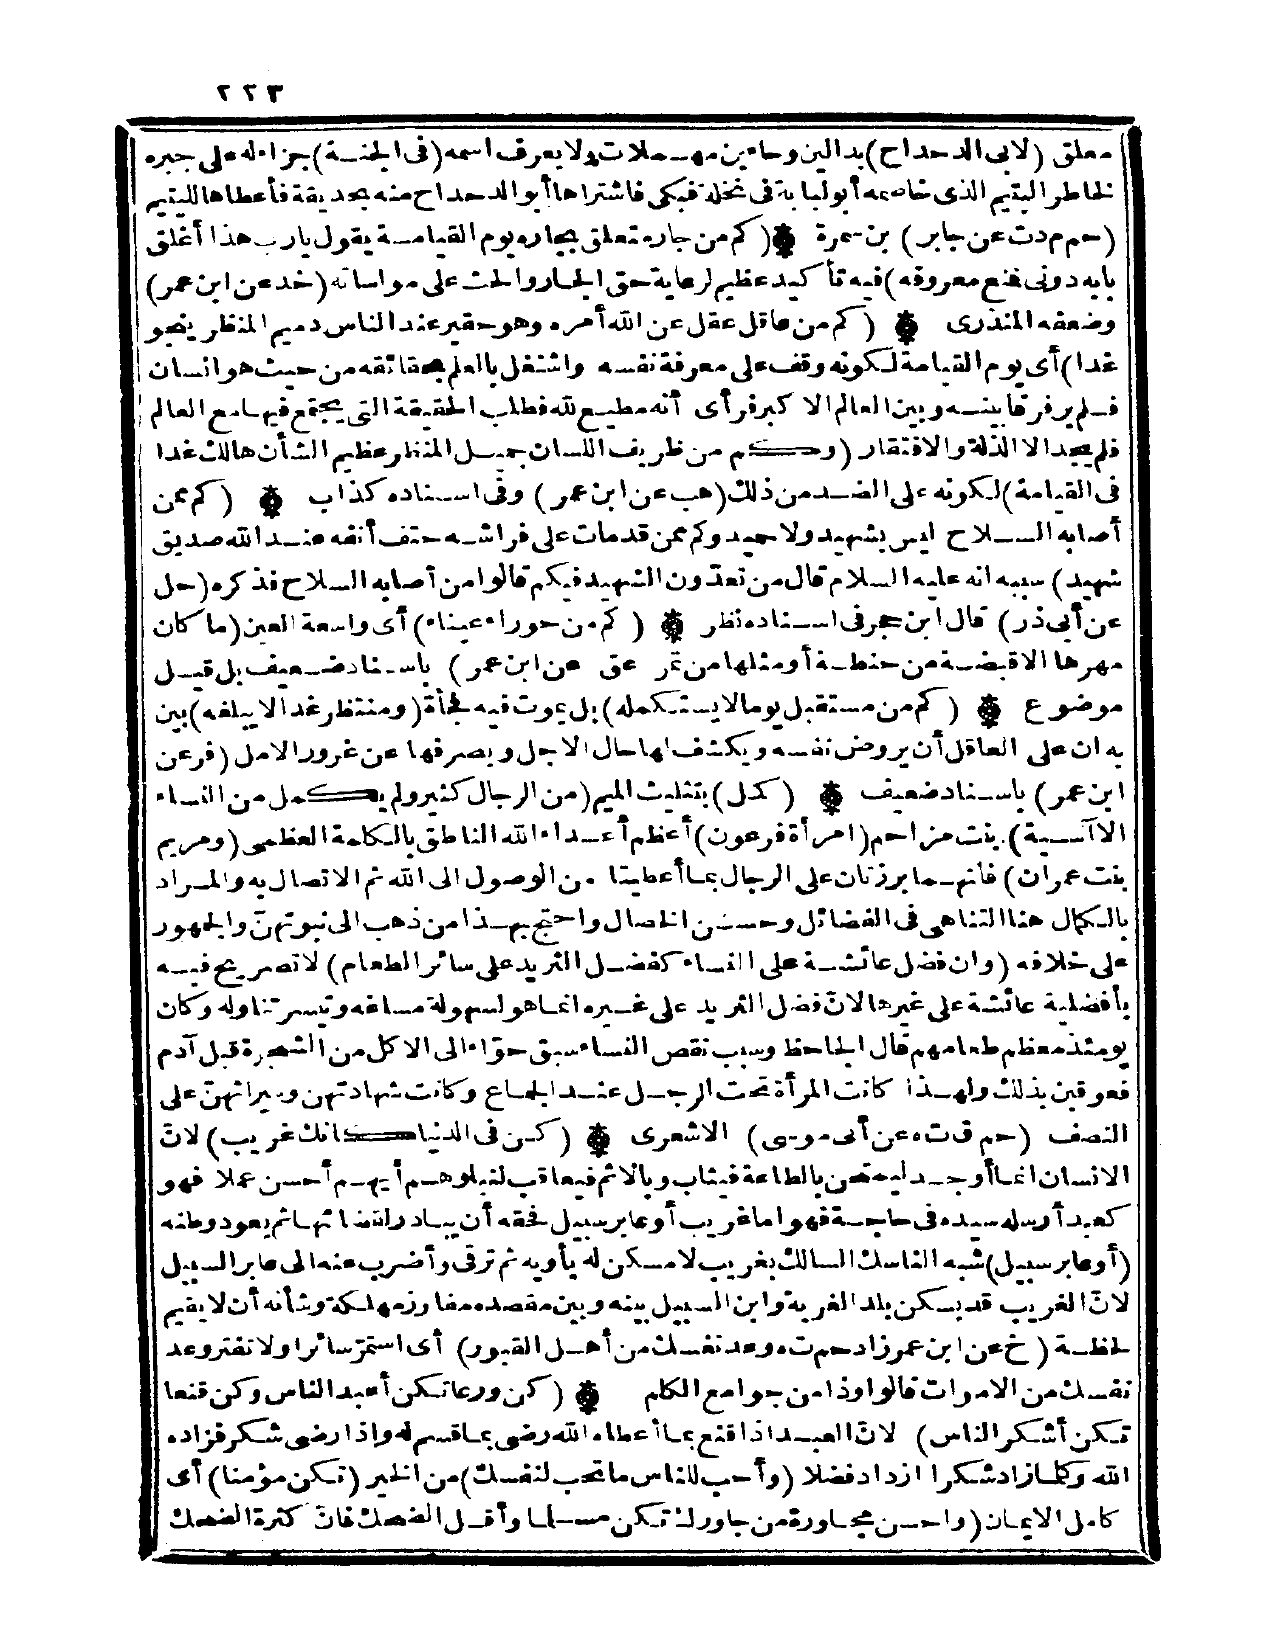 ٢٢٣
معلق (لابى الدحداح) بدالين وحاءين مهملات ولا يعرف اسمه (فى الجنة) جزاء له على جبره
لخاطر اليتيم الذى خاصمه أبو لبابة فى نخلة فبكى فاشتراها أبو الدحداح منه بحديقة فأعطاها لليتيم
(حم م د ت عن جابر) بن سمرة ۞ (كم من جار متعلق بجاره يوم القيامة يقول يارب هذا أغلق
بابه دونى فمنع معروفه) فيه تأكيد عظيم لرعاية حق الجار والحث على مواساته (خد عن ابن عمر)
وضعفه المنذرى ۞ (كم من عاقل عقل عن الله أمره وهو حقير عند الناس دميم المنظر ينجو
غدا) أى يوم القيامة لكونه وقف على معرفة نفسه واشتغل بالعلم بحقائقه من حيث هو انسان
فلم ير فرقا بينه وبين العالم الاكبر فرأى أنه مطيع لله فطلب الحقيقة التى يجتمع فيها مع العالم
فلم يجد الا الذلة والافتقار (وكم من ظريف اللسان جميل المنظر عظيم الشأن هالك غدا
فى القيامة) لكونه على الضد من ذلك (هب عن ابن عمر) وفى اسناده كذاب ۞ (كم ممن
أصابه السلاح ليس بشهيد ولا حميد وكم ممن قد مات على فراشه حتف أنفه عند الله صديق
شهيد) سببه انه عليه السلام قال من تعدّون الشهيد فيكم قالوا من أصابه السلاح فذكره (حل
عن أبى ذر) قال ابن حجر فى اسناده نظر ۞ (كم من حوراء عيناء) أى واسعة العين (ما كان
مهرها الا قبضة من حنطة أو مثلها من تمر عق عن ابن عمر) باسناد ضعيف بل قيل
موضوع ۞ (كم من مستقبل يوما لا يستكمله) بل يموت فيه فجأة (ومنتظر غدا لا يبلغه) بين
به ان على العاقل أن يروض نفسه ويكشف لها حال الاجل ويصرفها عن غرور الامل (فر عن
ابن عمر) باسناد ضعيف ۞ (كمل) بتثليث الميم (من الرجال كثير ولم يكمل من النساء
الا آسية) بنت مزاحم (امرأة فرعون) أعظم أعداء الله الناطق بالكلمة العظمى (ومريم
بنت عمران) فانهما برزتان على الرجال بما أعطيتا من الوصول الى الله ثم الاتصال به والمراد
بالكمال هنا التناهى فى الفضائل وحسن الخصال واحتج بهذا من ذهب الى نبوتهنّ والجمهور
على خلافه (وان فضل عائشة على النساء كفضل الثريد على سائر الطعام) لا تصريح فيه
بأفضلية عائشة على غيرها لانّ فضل الثريد على غيره انما هو لسهولة مساغه وتيسر تناوله وكان
يومئذ معظم طعامهم قال الجاحظ وسبب نقص النساء سبق حوّاء الى الاكل من الشجرة قبل آدم
فعوقبن بذلك ولهذا كانت المرأة تحت الرجل عند الجماع وكانت شهادتهن وميراثهنّ على
النصف (حم ق ت ه عن أبى موسى) الاشعرى ۞ (كن فى الدنيا كانك غريب) لانّ
الانسان انما أوجد ليمتحن بالطاعة فيثاب وبالاثم فيعاقب لنبلوهم أيهم أحسن عملا فهو
كعبد أرسله سيده فى حاجة فهو اما غريب أو عابر سبيل فحقه أن يبادر لقضائها ثم يعود وطنه
(أو عابر سبيل) شبه الناسك السالك بغريب لا مسكن له يأويه ثم ترقى وأضرب عنه الى عابر السبيل
لانّ الغريب قد يسكن بلد الغربة وابن السبيل بينه وبين مقصده مفاوز مهلكة وشأنه أن لا يقيم
لحظة (خ عن ابن عمر زاد حم ت ه وعد نفسك من أهل القبور) أى استمرّ سائرا ولا تفتر وعد
نفسك من الاموات قالوا وذا من جوامع الكلم ۞ (كن ورعا تكن أعبد الناس وكن قنعا
تكن أشكر الناس) لانّ العبد اذا قنع بما أعطاه الله رضى بما قسم له واذا رضى شكر فزاده
الله وكلما زاد شكرا ازداد فضلا (وأحب للناس ما تحب لنفسك) من الخير (تكن مؤمنا) أى
كامل الايمان (واحسن مجاورة من جاورك تكن مسلما وأقل الضحك فانّ كثرة الضحك